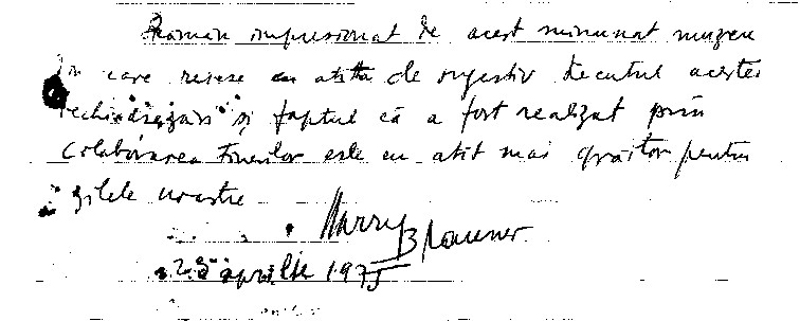 Rămân impresionat de acest minunat muzeu
în care reiese cu atîta de sugestiv trecutul acestei
vechi așezări și faptul că a fost realizat prin
colaborarea tinerilor este cu atît mai grăitor pentru
zilele noastre
Harry Brauner
25 aprilie 1975